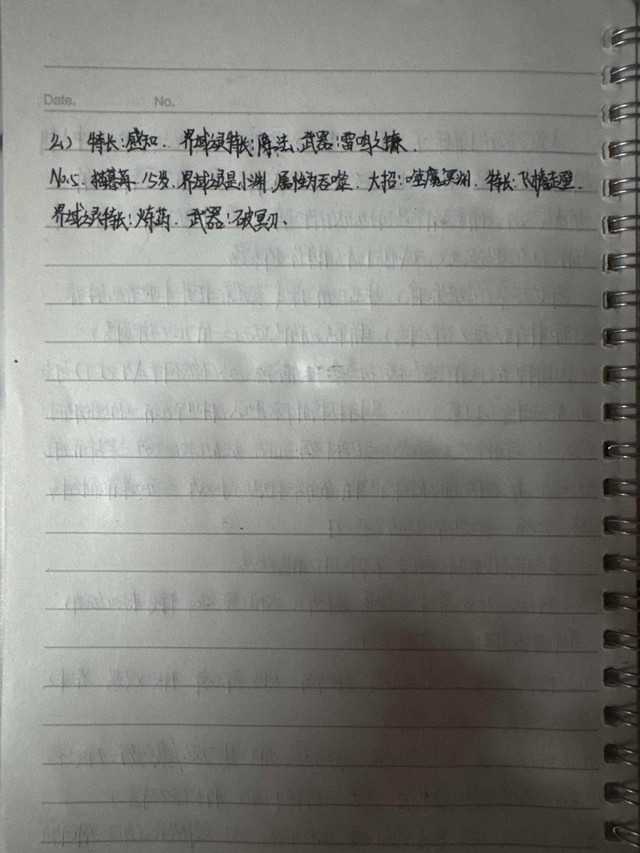 Date. No.
么) 特长:感知. 界域之灵特长:阵法、武器:雷鸣之镰.
No.5. 15岁. 界域之灵是小渊,属性为吞噬. 大招:噬魔冥渊. 特长:飞檐走壁.
界域之灵特长:炼药. 武器:破冥刃.